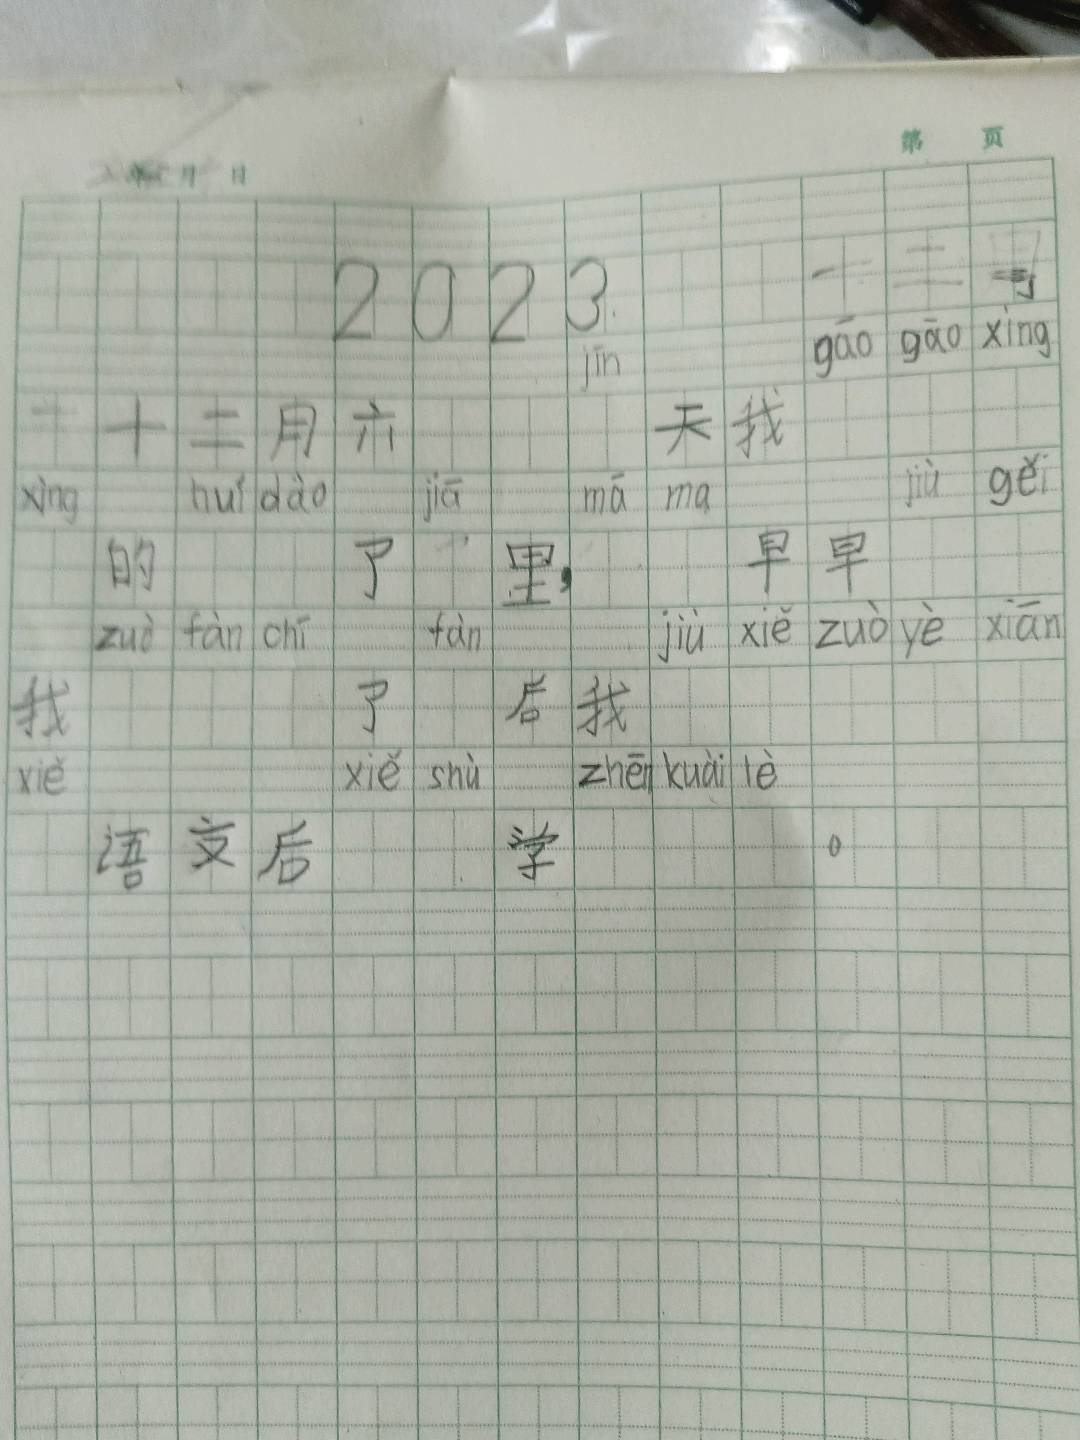 第 页
年 月 日
2023
jīn gāo gāo xìng
十二月六 天我
xìng huí dào jiā mā ma jiù gěi
的 了 里, 早早
zuò fàn chī fàn jiù xiě zuò yè xiān
我 了 后我
xiě xiě shù zhēn kuài lè
语文后 学 。